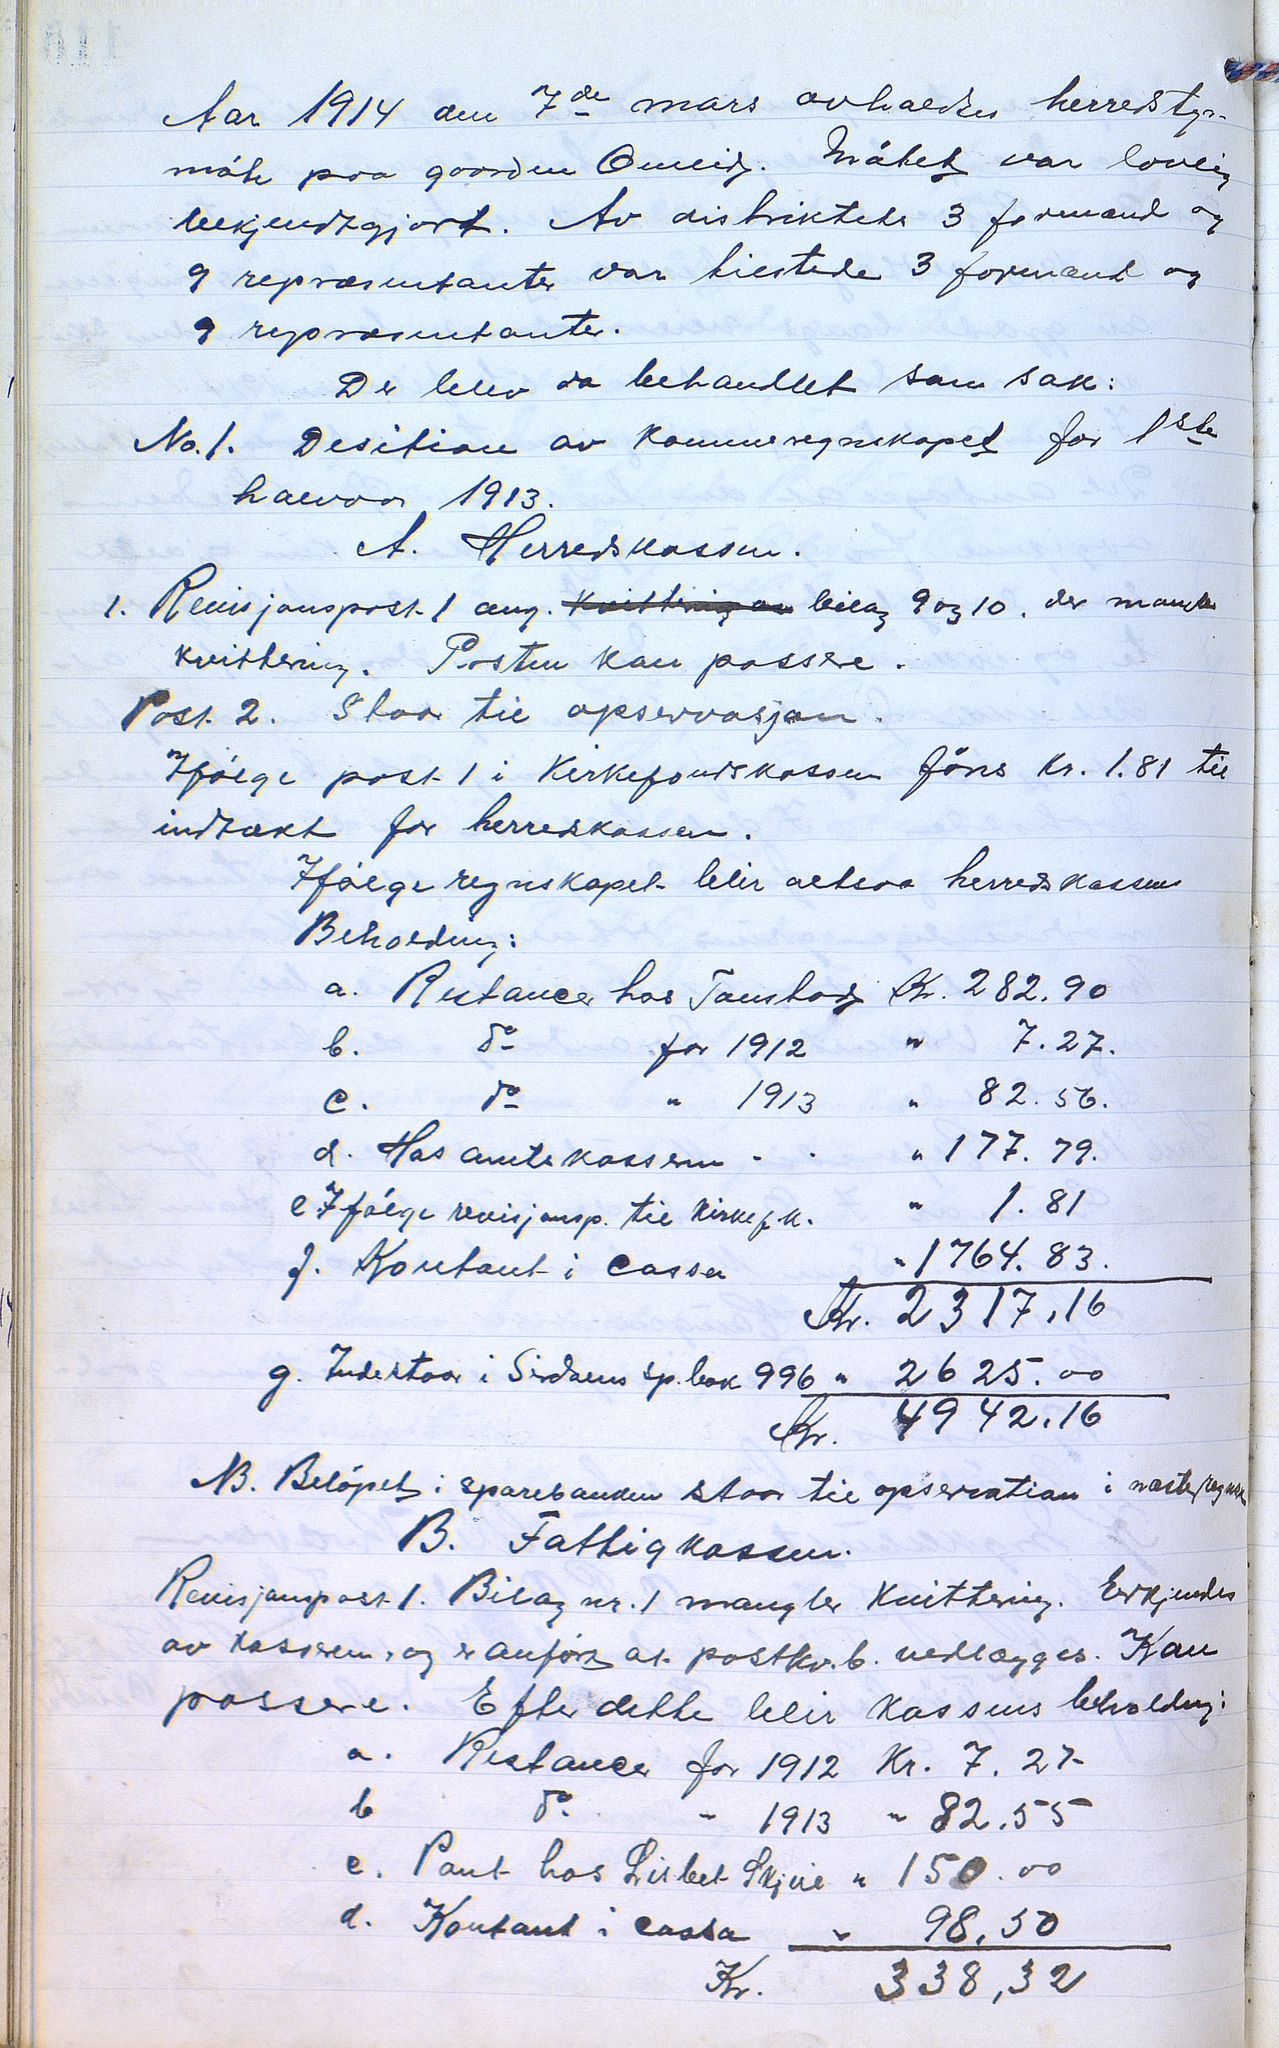 Aar 1914 den 7de mars avholdtes herredsty-
möte paa gaarden Omlid. Mötet var lovlig
bekjendtgjort. Av distriktets 3 formænd og
9 repræsentanter var tilstede 3 formænd og
9 repræsentanter.
Der blev da behandlet som sak:
No. 1. Desition av kommuneregnskapet for 1ste
halvaar 1913.
A. Herredskassen.
1. Revisjonspost 1 ang. Kvittering av bilag 9 og 10. der mangler
kvittering. Posten kan passere.
Post 2. Staar til opservasjon.
Ifölge post 1 i Kirkefondskassen föres Kr. 1.81 til
indtækt for herredskassen.
Ifölge regnskapet blir altsaa herredskassens
Beholdning:
a. Restancer hos Tonstad Kr. 282.90
b. do for 1912 " 7.27.
c. do " 1913 " 82.56.
d. Hos amtskassen - - " 177.79.
e Ifölge revisjonsp. til Kirkef.k. " 1.81
f. Kontant i cassa " 1764.83.
Kr. 2317,16
g. Indestaar i Sirdalens sp.bak 996 " 2625.00
Kr. 4942.16
NB. Belöpet i sparebanken staar til opservation i næste regnsk
B. Fattigkassen.
Revisjonspost 1. Bilag nr. 1 mangler kvittering. Erkjendes
av kasseren, og er anfört at postkv.b. vedlægges. Kan
passere. Efter dette blir kassens beholdning:
a. Restancer for 1912 Kr. 7.27
b do " 1913 " 82.55
c. Pant hos Lisbet " 150.00
d. Kontant i cassa " 98,50
Kr. 338,32